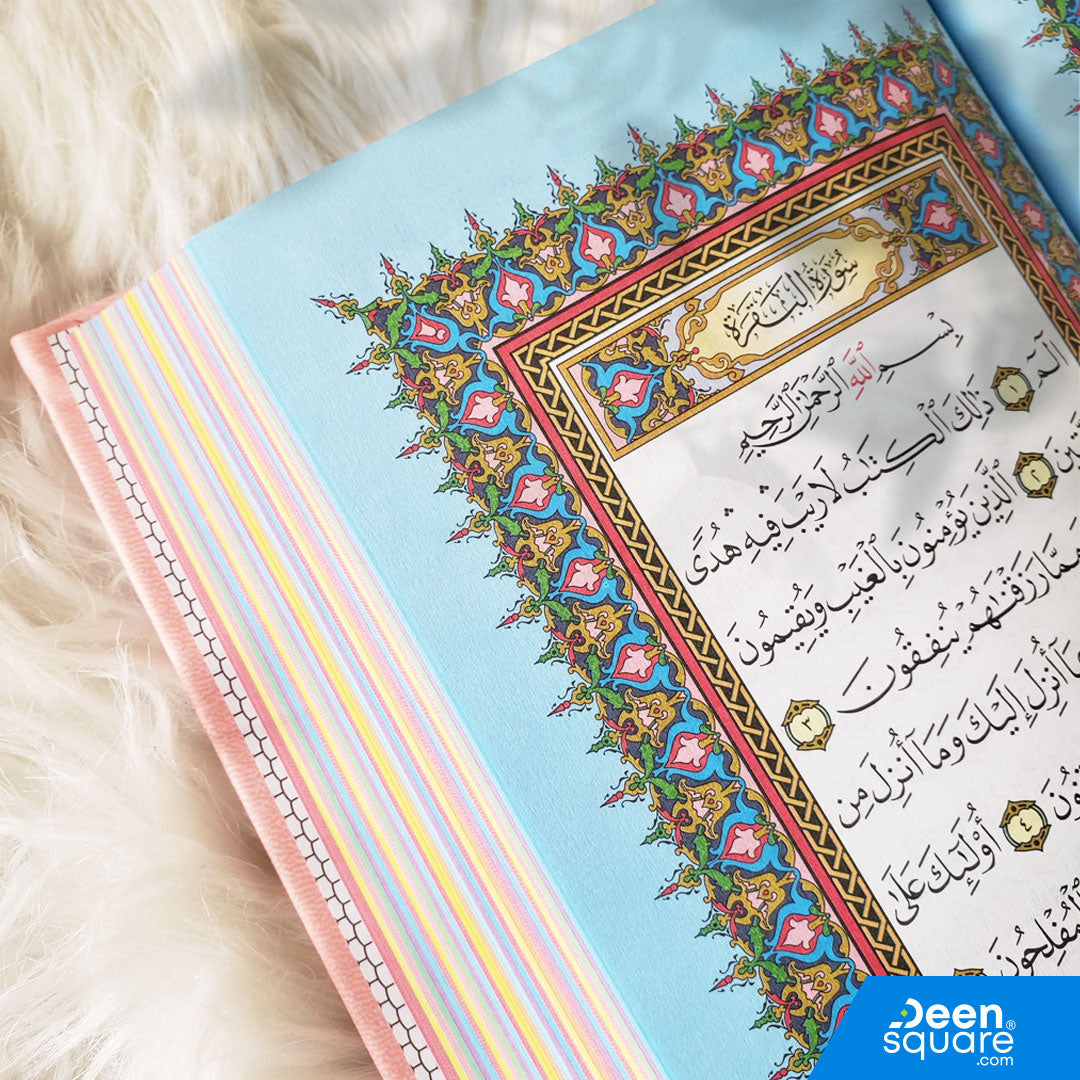 سُورَةُ الْبَقَرَةِ
بِسْمِ ٱللَّهِ ٱلرَّحْمَٰنِ ٱلرَّحِيمِ
الٓمٓ ١ ذَٰلِكَ ٱلْكِتَٰبُ لَا رَيْبَ فِيهِ هُدًى
٢ ٱلَّذِينَ يُؤْمِنُونَ بِٱلْغَيْبِ وَيُقِيمُونَ
مِمَّا رَزَقْنَٰهُمْ يُنفِقُونَ ٣
أُنزِلَ إِلَيْكَ وَمَآ أُنزِلَ مِن
٤ أُو۟لَٰٓئِكَ عَلَىٰ
ٱلْمُفْلِحُونَ
Deen
square®
.com